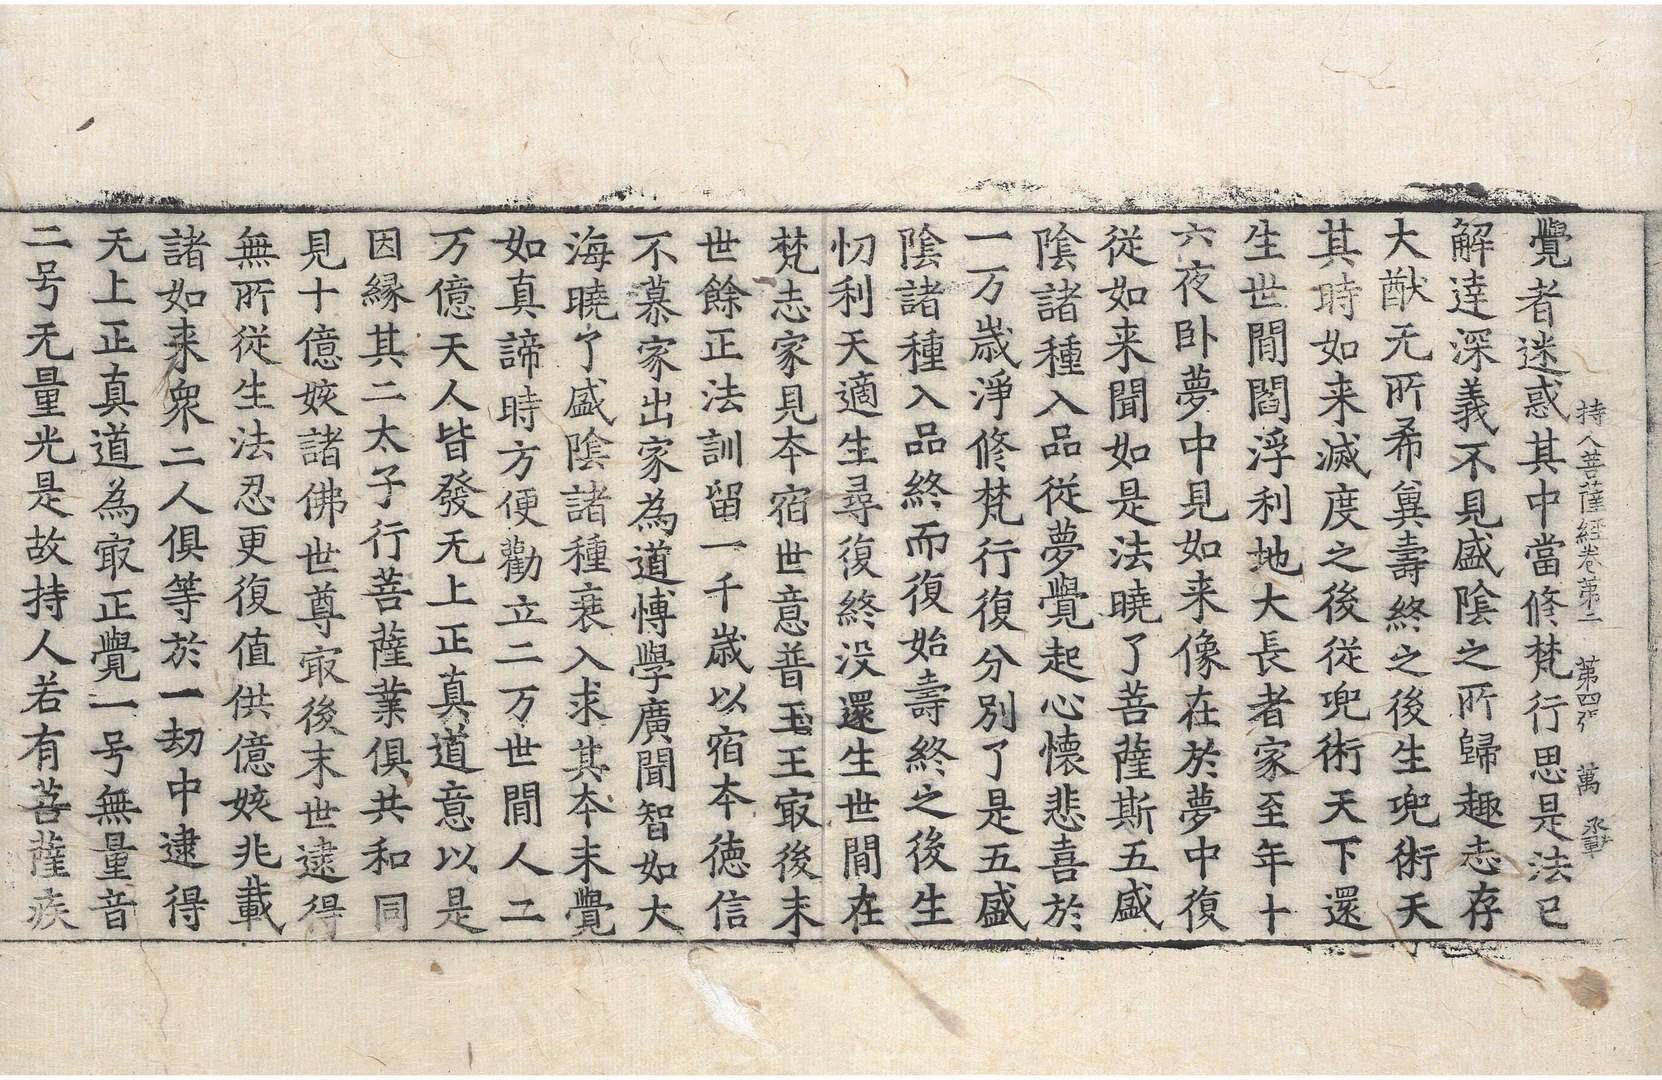 持人菩薩經卷第二 第四張 萬
覺者迷惑其中當修梵行思是法已
解達深義不見盛陰之所歸趣志存
大猷无所希冀壽終之後生兜術天
其時如来滅度之後従兜術天下還
生世間閻浮利地大長者家至年十
六夜卧夢中見如来像在於夢中復
従如来聞如是法曉了菩薩斯五盛
陰諸種入品従夢覺起心懐悲喜於
一万歳淨修梵行復分別了是五盛
陰諸種入品終而復始壽終之後生
忉利天適生尋復終没還生世間在
梵志家見夲宿世意普玉王冣後末
世餘正法訓留一千歳以宿夲徳信
不慕家出家為道博學廣聞智如大
海曉了盛陰諸種衰入求其夲末覺
如真諦時方便勸立二万世間人二
万億天人皆發无上正真道意以是
因縁其二太子行菩薩業俱共和同
見十億姟諸佛世尊冣後末世逮得
無所従生法忍更復值供億姟兆載
諸如来衆二人俱等於一劫中逮得
无上正真道為冣正覺一号無量音
二号无量光是故持人若有菩薩疾